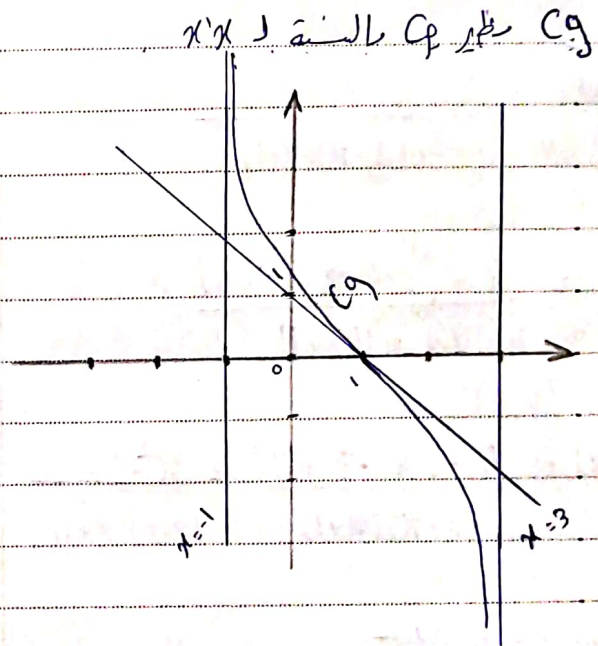 Cg نظير Cf بالنسبة لـ x'x .
1
Cg
0
1
x=-1
x=3